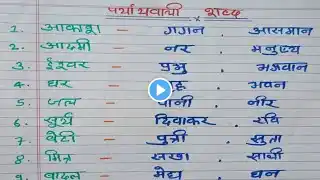 पर्यायवाची शब्द
1. आकाश - गगन . आसमान
2. आदमी - नर . मनुष्य
3. ईश्वर - प्रभु . भगवान
4. घर - गृह . भवन
5. जल - पानी . नीर
6. सूर्य - दिवाकर . रवि
7. बेटी - पुत्री . सुता
8. मित्र - सखा . साथी
9. बादल - मेघ . घन